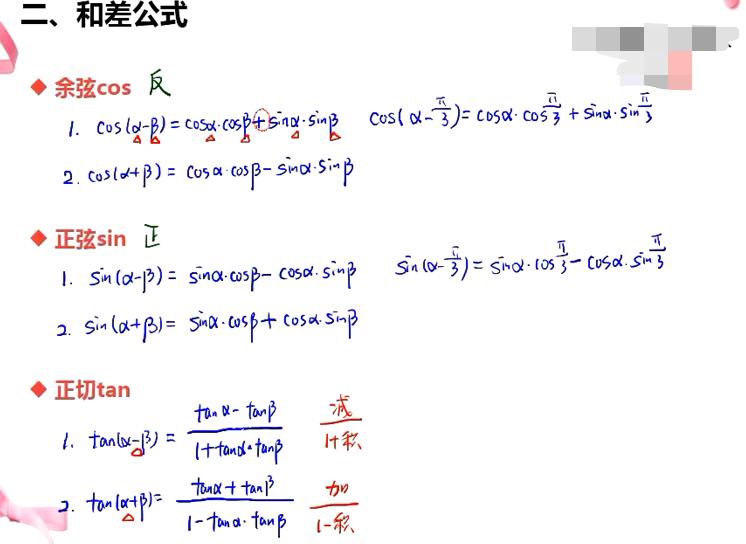 二、和差公式
◆ 余弦cos 反
1. cos(α-β)=cosα·cosβ+sinα·sinβ cos(α-π/3)=cosα·cosπ/3+sinα·sinπ/3
2. cos(α+β)=cosα·cosβ-sinα·sinβ
◆ 正弦sin 正
1. sin(α-β)=sinα·cosβ-cosα·sinβ sin(α-π/3)=sinα·cosπ/3-cosα·sinπ/3
2. sin(α+β)=sinα·cosβ+cosα·sinβ
◆ 正切tan
1. tan(α-β)=(tanα-tanβ)/(1+tanα·tanβ) 减/1+积
2. tan(α+β)=(tanα+tanβ)/(1-tanα·tanβ) 加/1-积